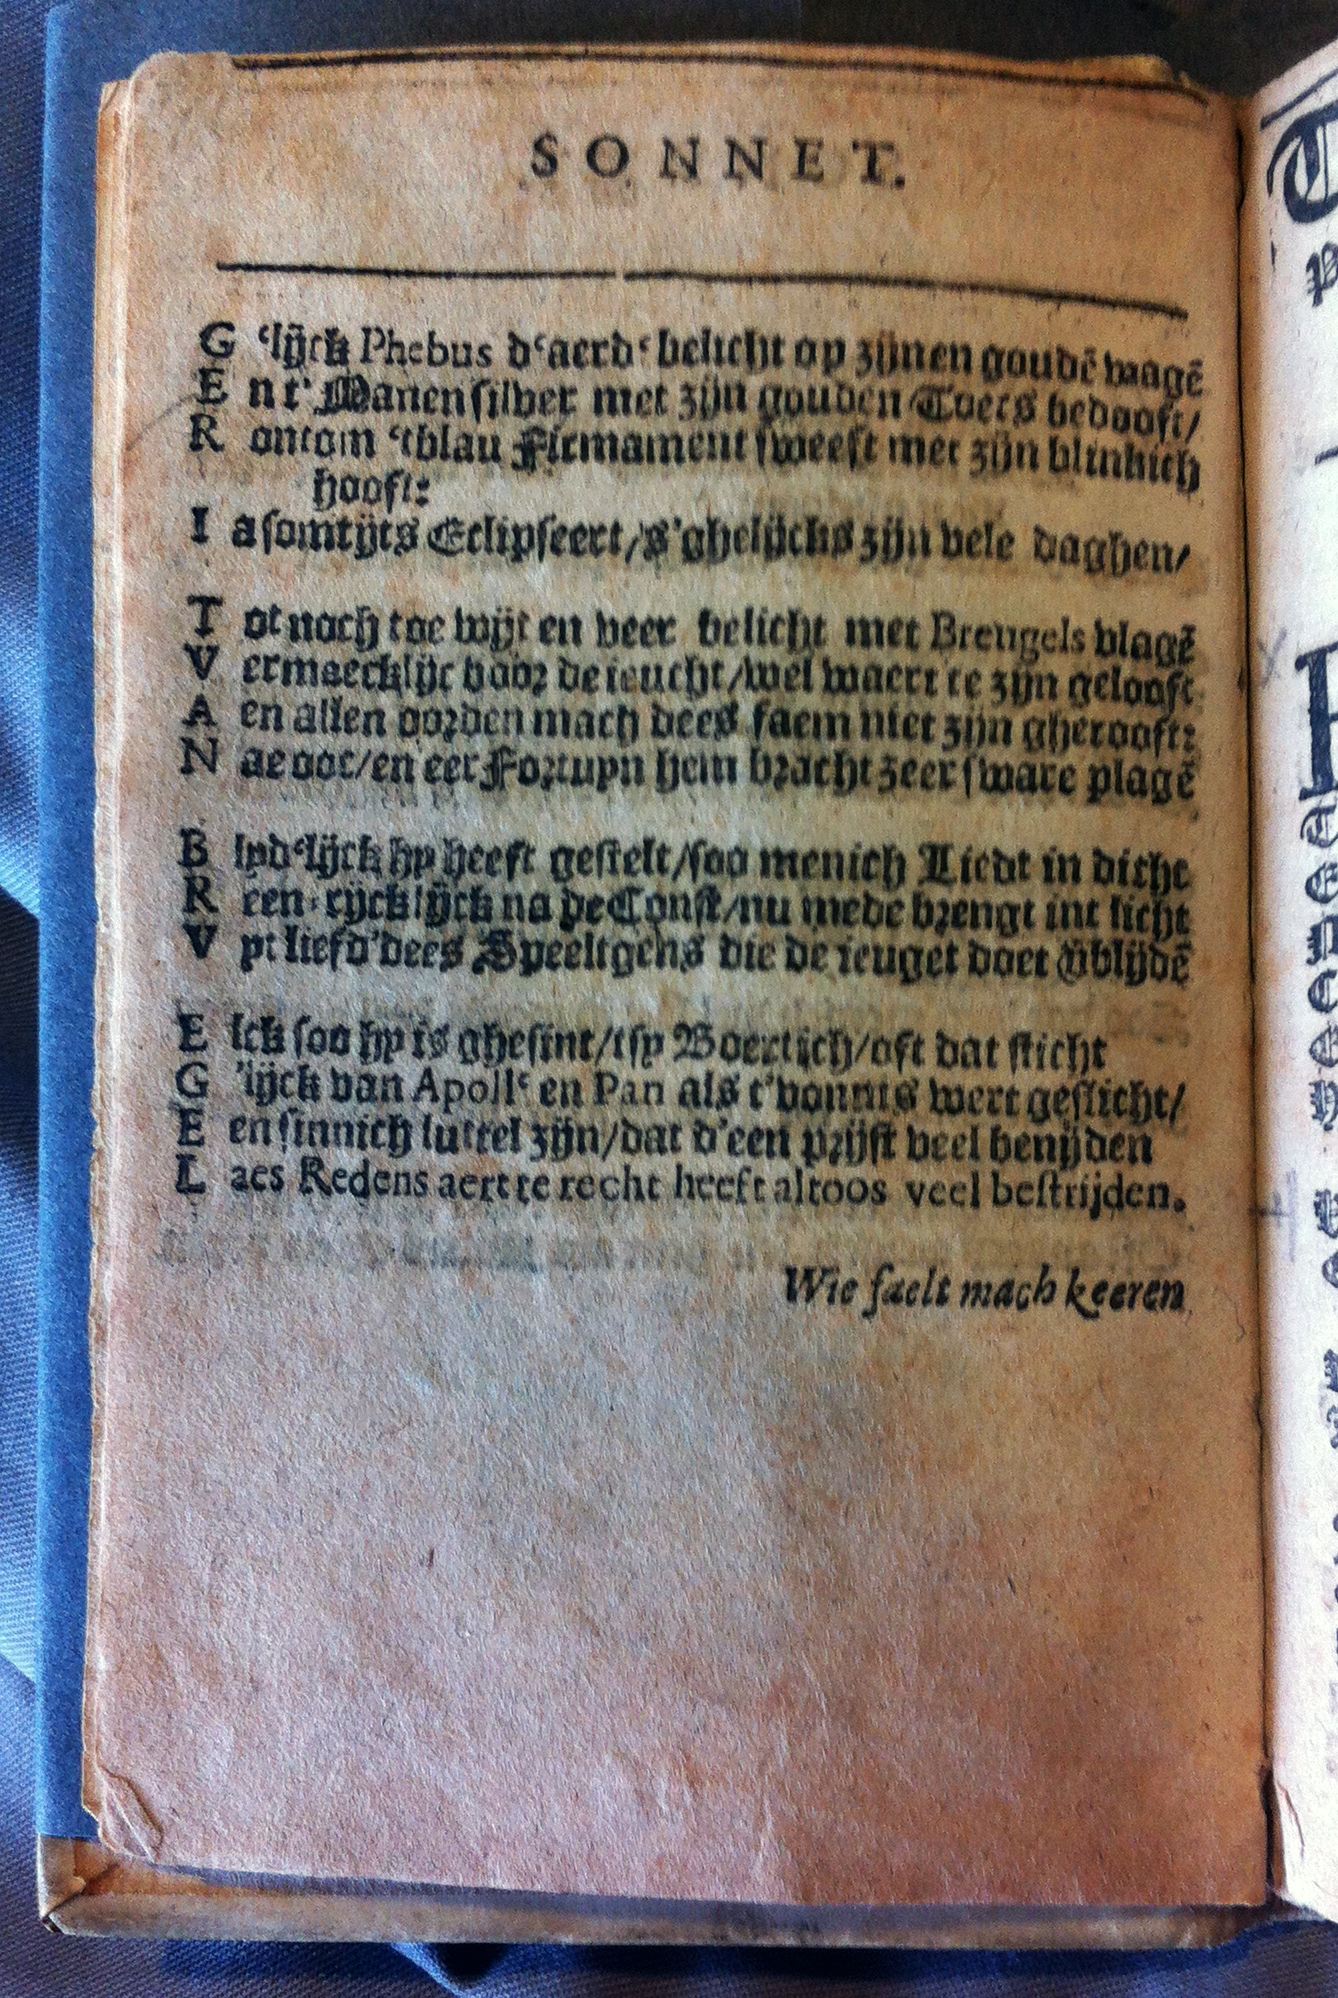 SONNET.
G ‘lijck Phebus d‘aerd‘ belicht op zijnen goudē wagē
E n t’ Manen silver met zijn gouden Toets bedooft/
R ontom ‘tblau Firmament sweeft met zijn blinkich
hooft:
I a somtijts Eclipseert/s’ghelijcks zijn vele daghen/
T ot noch toe wijt en veer belicht met Breugels vlagē
V ermaecklijc voor de ieucht/wel waert te zijn gelooft
A en allen oorden mach dees faem niet zijn gherooft:
N ae ooc/en eer Fortuyn hem bracht zeer sware plagē
B lyd‘lijck hy heeft gestelt/soo menich Liedt in dicht
R een-rijcklijck na de Const/nu mede brengt int licht
V yt liefd’dees Speeltgens die de ieuget doet v̄blijdē
E lck soo hy is ghesint/tsy Boertich/oft dat sticht
G ’lijck van Apoll‘ en Pan als t’vonnis wert geslicht/
E en sinnich luttel zijn/dat d’een prijst veel benijden
L aes Redens aert te recht heeft altoos veel bestrijden.
Wie faelt mach keeren